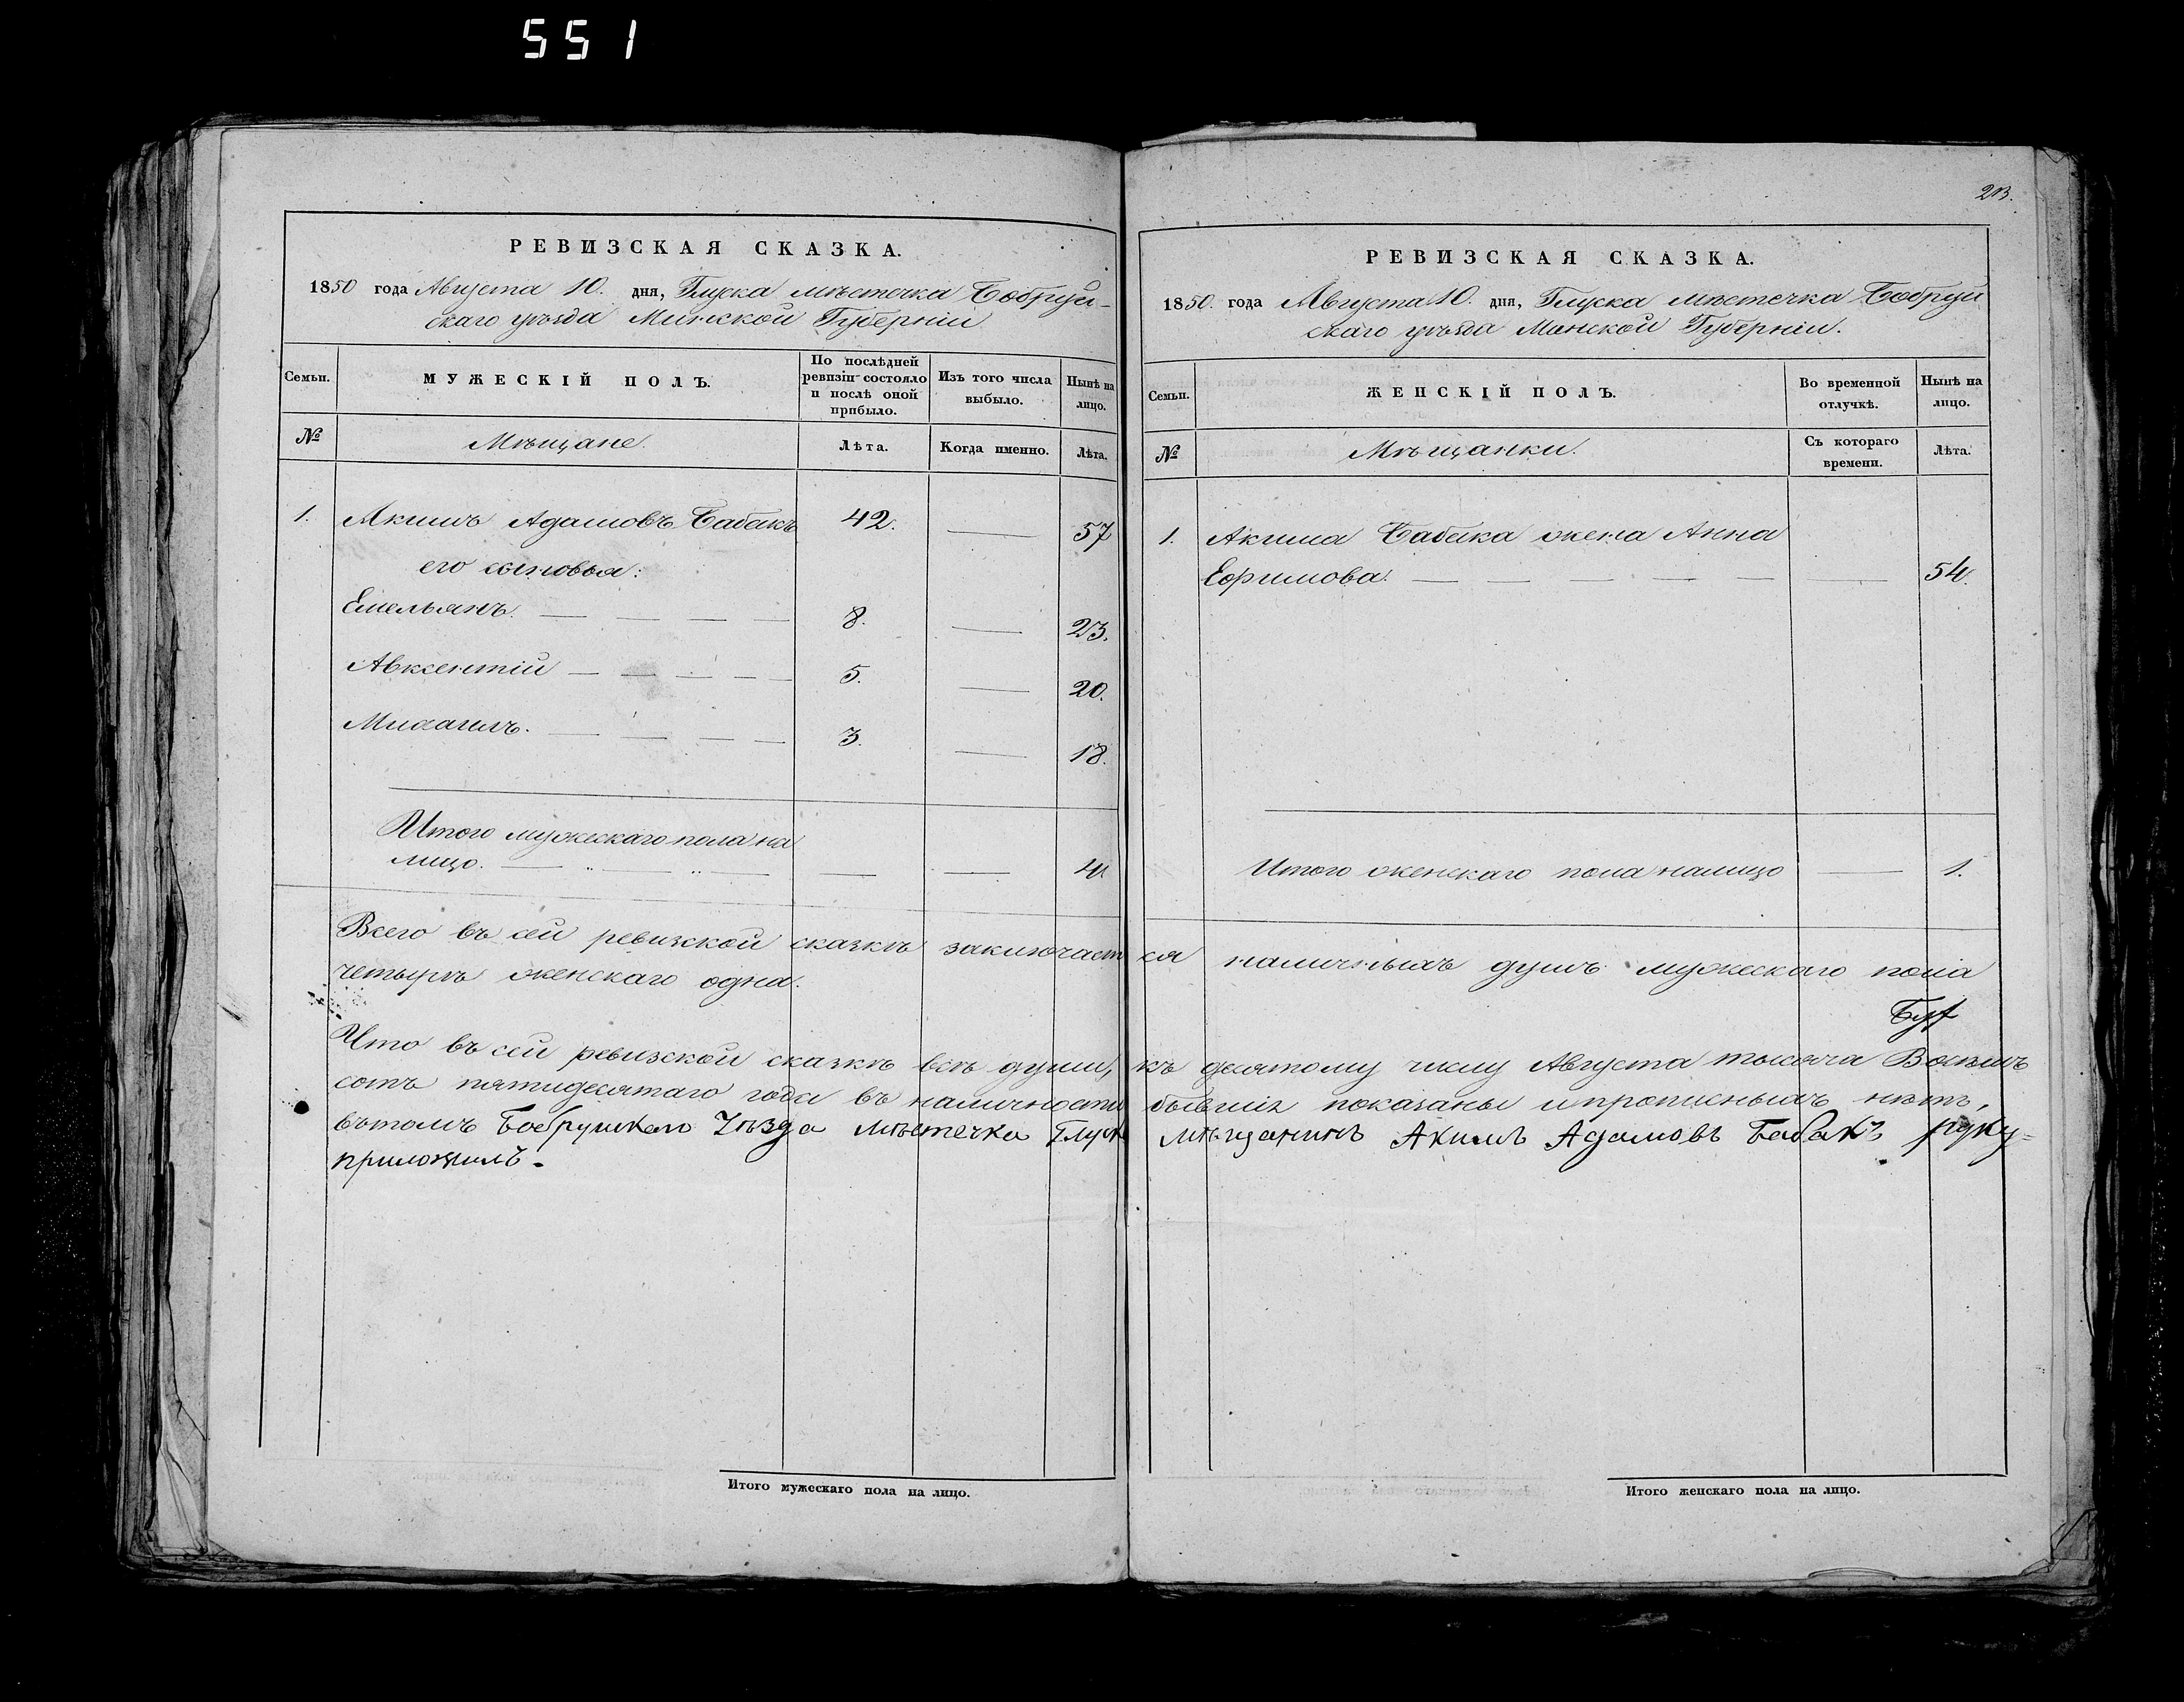 551
РЕВИЗСКАЯ СКАЗКА.
1850 года Августа 10. дня, Глуска мѣстечка Бобруй-
скаго уѣзда Минской Губерніи
Семьи.
МУЖЕСКІЙ ПОЛЪ.
По послѣдней
ревизіи состояло
и послѣ оной
прибыло.
Изъ того числа
выбыло.
Нынѣ на
лицо.
№
Мѣщане.
Лѣта.
Когда именно.
Лѣта.
1. Акимъ Адамовъ Бабакъ 42. 57
его сыновья:
Емельянъ. 8. 23.
Авксентій 5. 20.
Михаилъ. 3. 18.
Итого мужескаго пола на
лицо. 4.
Всего въ сей ревизской сказкѣ заключает
четырѣ женскаго одна.
Что въ сей ревизской сказкѣ всѣ души,
сотъ пятидесятаго года въ наличности
вътомъ Бобруйскаго Уѣзда мѣстечка Глуск
приложилъ.
Итого мужескаго пола на лицо.
213.
РЕВИЗСКАЯ СКАЗКА.
1850. года Августа 10. дня, Глуска мѣстечка Бобруй
скаго уѣзда Минской Губерніи.
Семьи.
ЖЕНСКІЙ ПОЛЪ.
Во временной
отлучкѣ.
Нынѣ на
лицо.
№
Мѣщанки.
Съ котораго
времени.
Лѣта.
1. Акима Бабака жена Анна
Ефимова. 54.
Итого женскаго пола налицо 1.
ся наличныхъ душъ мужескаго пола
къ десятому числу Августа тысяча Восемь
бывшія показаны и прописныхъ нѣтъ,
мѣщанинъ Акимъ Адамовъ Бабакъ руку-
Итого женскаго пола на лицо.